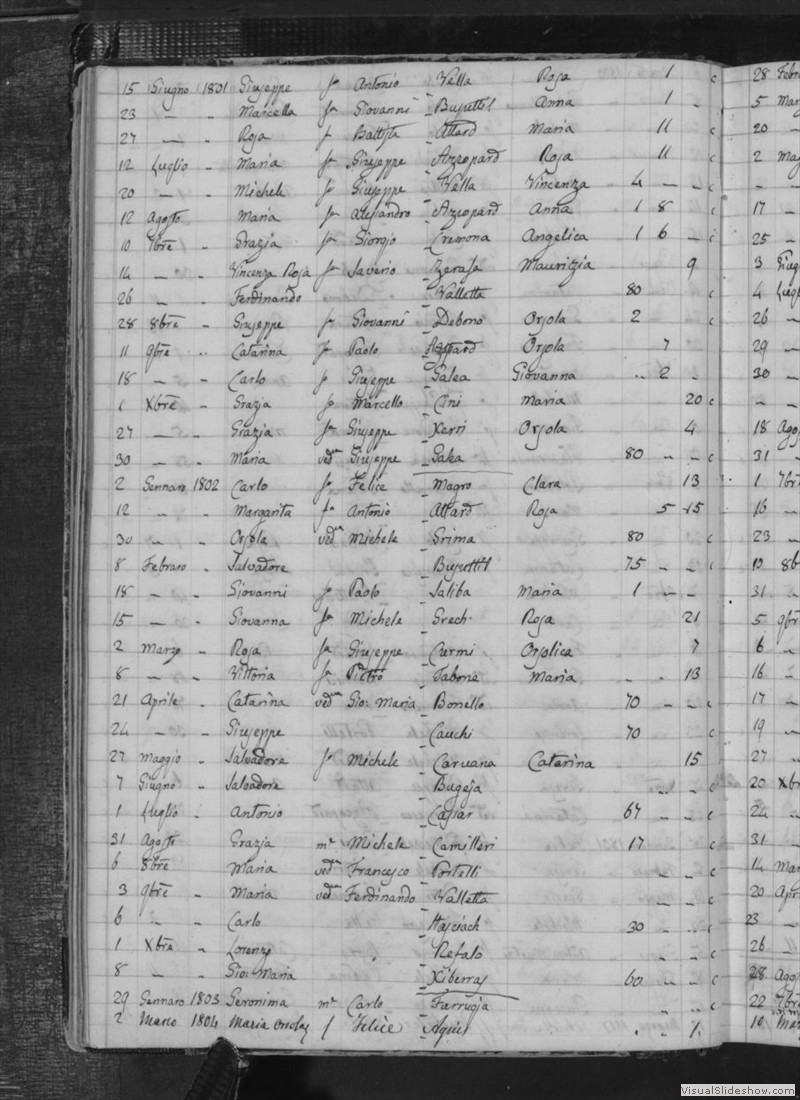 15 Giugno 1801 Giuseppe f° Antonio Vella Rosa 1 c
23 — " Marcella fa Giovanni Busuttil Anna 1 "
27 — " Rosa f Battista Attard Maria 11 c
12 Luglio " Maria fa Giuseppe Azzopard Rosa 11 c
20 — " Michele f° Giuseppe Vella Vincenza 4 — " c
12 Agosto " Maria fa Alessandro Azzopard Anna 1 8 c
10 7bre " Grazia fa Giorgio Cremona Angelica 1 6 " c
14 — " Vincenza Rosa fa Saverio Zerafa Mauritzia 9
26 — " Ferdinando Valletta 80 c
28 8bre " Giuseppe f° Giovanni Debono Orsola 2 c
11 9bre " Catarina f Paolo Orsola 7
18 — " Carlo f° Giuseppe Galea Giovanna " 2 "
1 Xbre " Grazia f° Marcello Cini Maria 20 c
27 — " Grazia fa Giuseppe Xerri Orsola 4
30 — " Maria veda Giuseppe Galea 80 — " c
2 Gennaro 1802 Carlo f° Felice Magro Clara 13
12 " Margarita fa Antonio Attard Rosa 5 15
30 " Orsola veda Michele Grima 80 c
8 Febraro " Salvadore Busuttil 75 — " c
18 — " Giovanni f° Paolo Saliba Maria 1 — "
15 — " Giovanna fa Michele Grech Rosa 21
2 Marzo " Rosa fa Giuseppe Curmi Orsolica 7
8 — " Vittoria fa Pietro Tabone Maria " " 13
21 Aprile " Catarina veda Gio: Maria Bonello 70 — " c
24 — " Giuseppe Cauchi 70 c
27 Maggio " Salvadore f° Michele Caruana Catarina 15
7 Giugno " Salvadore Bugeja
1 Luglio " Antonio Cassar 67 — " c
31 Agosto Grazia me Michele Camilleri 17 c
6 8bre Maria veda Francesco Portelli " " c
3 9bre " Maria veda Ferdinando Valletta
6 " Carlo 30 — " c
1 Xbre " Lorenzo Refalo " " c
8 — " Gio: Maria Xiberras 60 — " c
29 Gennaro 1803 Geronima me Carlo Farrugia " " c
2 Marzo 1804 Maria f Felice Agius
28 Febra
5 Mar
20 "
2 Mag
" "
17 "
25 "
3 Giug
4 Lugl
26 "
29 "
30 "
" "
18 Ago
31 "
1 7bre
16 "
23 "
10 8b
31 "
5 9bre
6 "
16 "
17 "
19 "
27 "
20 Xbr
24 "
31 "
14 Mar
20 Apri
23 "
26 "
28 Ago
22 7bre
10 Mar
VisualSlideshow.com